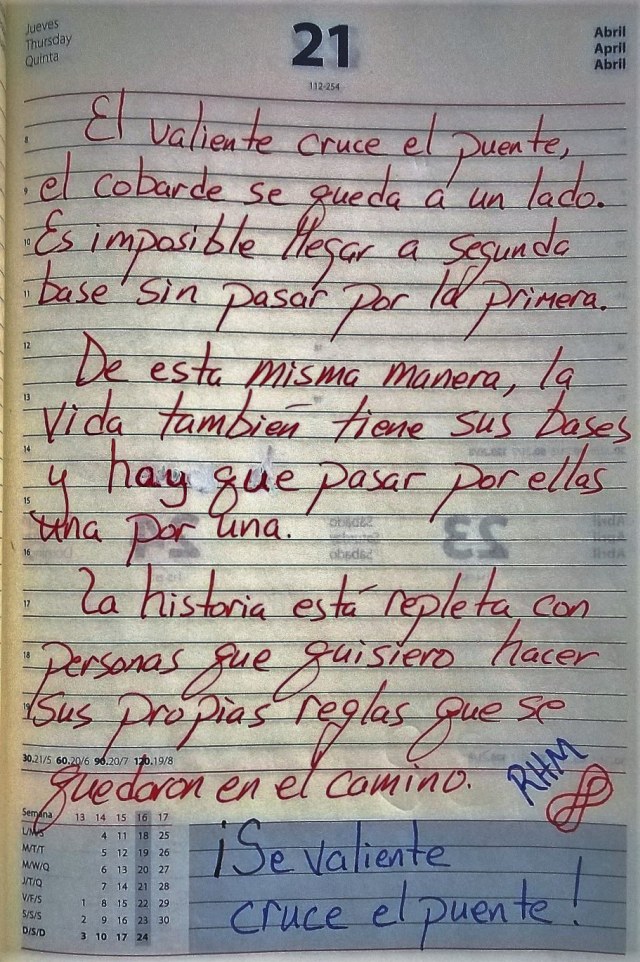 Jueves
Thursday
Quinta
21
112-254
Abril
April
Abril
El valiente cruce el puente,
el cobarde se queda a un lado.
Es imposible llegar a segunda
base sin pasar por la primera.
De esta misma manera, la
vida también tiene sus bases
y hay que pasar por ellas
una por una.
La historia está repleta con
personas que quisiero hacer
sus propias reglas que se
quedaron en el camino.
RHM
¡Se valiente
cruce el puente!
8
9
10
11
12
13
14
15
16
17
18
19
30.21/5 60.20/6 90.20/7 120.19/8
Semana 13 14 15 16 17
L/M/S 4 11 18 25
M/T/T 5 12 19 26
M/W/Q 6 13 20 27
J/T/Q 7 14 21 28
V/F/S 1 8 15 22 29
S/S/S 2 9 16 23 30
D/S/D 3 10 17 24
23
Sábado
Saturday
Sábado